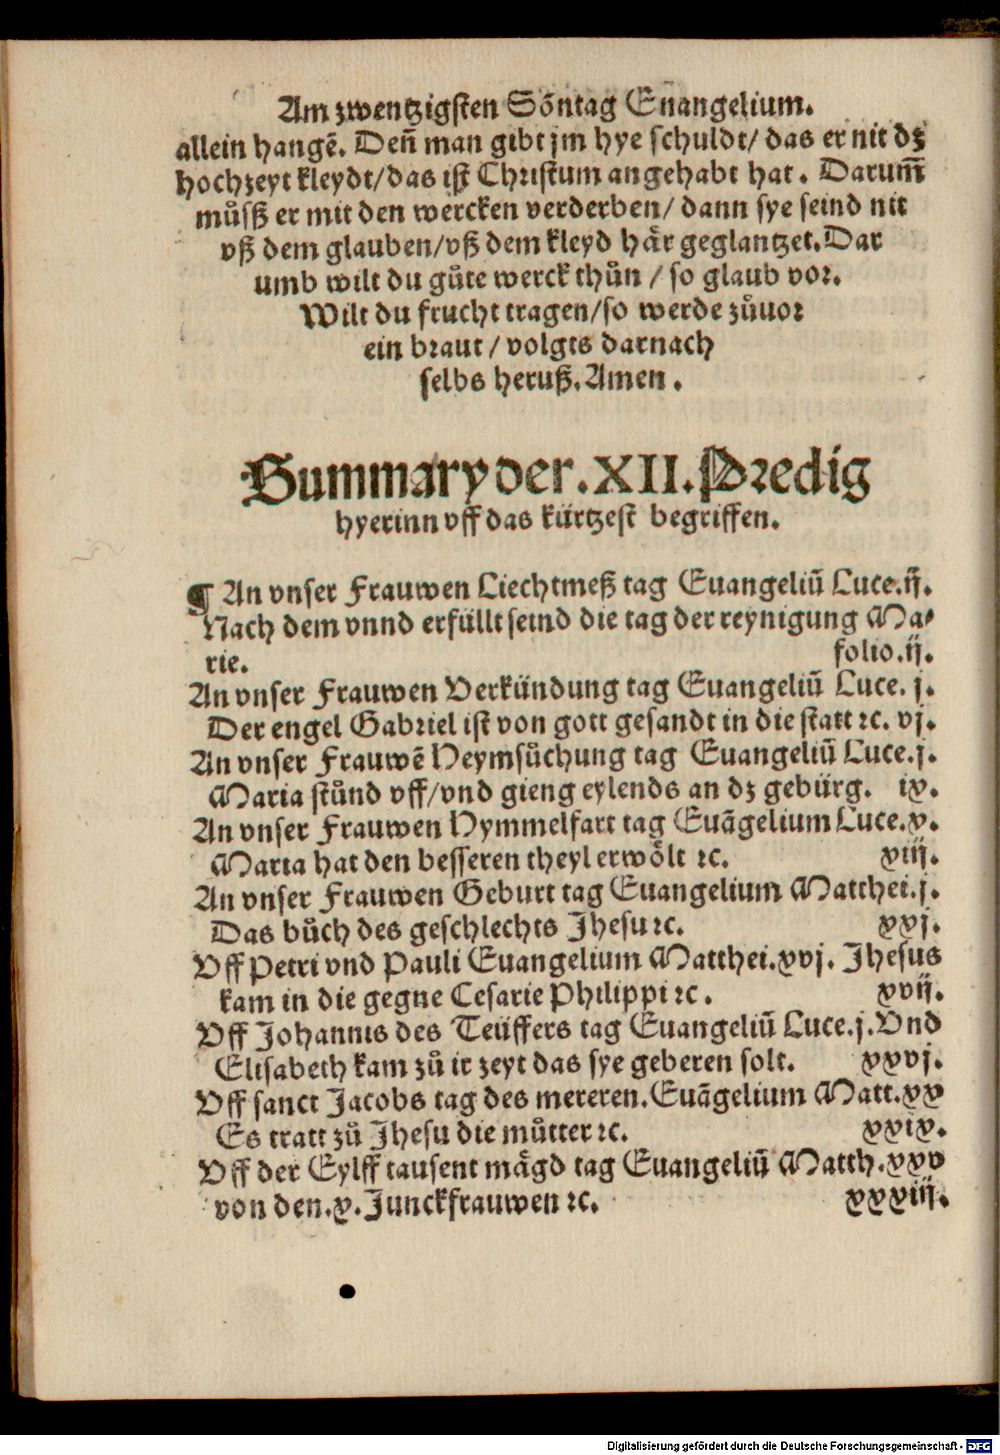 Am zwentzigsten Sõntag Euangelium.
allein hangẽ. Deñ man gibt jm hye schuldt/ das er nit dz
hochzeyt kleydt/das ist Christum angehabt hat. Darum̃
můſß er mit den wercken verderben/ dann sye seind nit
vß dem glauben/vß dem kleyd hår geglantzet. Dar
umb wilt du gůte werck thůn / so glaub vor.
Wilt du frucht tragen/so werde zůuor
ein braut / volgts darnach
selbs heruß. Amen.
Summary der .XII. Predig
hyerinn vff das kürtzest begriffen.
¶ An vnser Frauwen Liechtmeß tag Euangeliũ Luce.ij.
Nach dem vnnd erfüllt seind die tag der reynigung Ma⸗
rie. folio.ij.
An vnser Frauwen Verkündung tag Euangeliũ Luce. j.
Der engel Gabriel ist von gott gesandt in die statt ꝛc. vj.
An vnser Frauwẽ Heymsůchung tag Euangeliũ Luce.j.
Maria stůnd vff/vnd gieng eylends an dz gebürg. ix.
An vnser Frauwen Hymmelfart tag Euãgelium Luce.x.
Maria hat den besseren theyl erwőlt ꝛc. xiij.
An vnser Frauwen Geburt tag Euangelium Matthei.j.
Das bůch des geschlechts Jhesu ꝛc. xxj.
Vff Petri vnd Pauli Euangelium Matthei.xvj. Jhesus
kam in die gegne Cesarie Philippi ꝛc. xvij.
Vff Johannis des Teüffers tag Euangeliũ Luce.j. Vnd
Elisabeth kam zů ir zeyt das sye geberen solt. xxvj.
Vff sanct Jacobs tag des mereren. Euãgelium Matt.xx
Es tratt zů Jhesu die můtter ꝛc. xxix.
Vff der Eylff tausent mågd tag Euangeliũ Matth.xxv
von den.x. Junckfrauwen ꝛc. xxxiij.
Digitalisierung gefördert durch die Deutsche Forschungsgemeinschaft - DFG